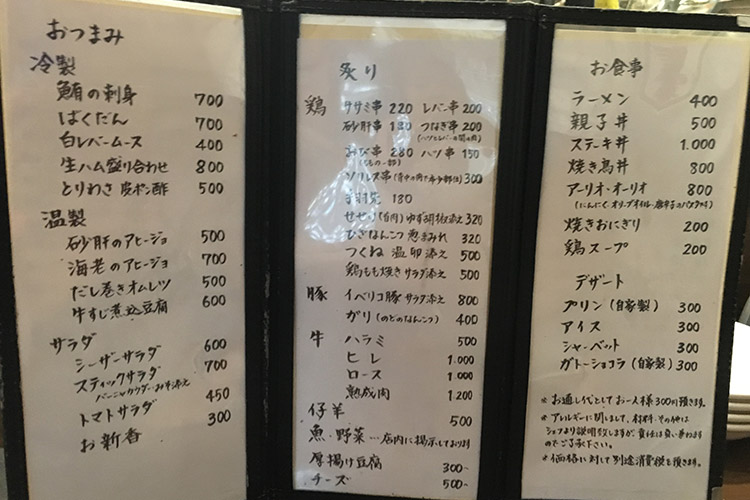 おつまみ
冷製
鮪の刺身 700
ばくだん 700
白レバームース 400
生ハム盛り合わせ 800
とりわさ 皮ポン酢 500
温製
砂肝のアヒージョ 500
海老のアヒージョ 700
だし巻きオムレツ 500
牛すじ煮込豆腐 600
サラダ
シーザーサラダ 600
スティックサラダ 700
バーニャカウダー・みそ添え
トマトサラダ 450
お新香 300
炙り
鶏 ササミ串 220 レバー串 200
砂肝串 180 つなぎ串 200
(ハツとレバーの間の肉)
おび串 280 ハツ串 150
(ももの一部)
ソリレス串 300
手羽先 180
せせり(首肉)ゆず胡椒添え 320
ひざなんこつ 葱まみれ 320
つくね 温卵添え 500
鶏もも焼き サラダ添え 500
豚 イベリコ豚 サラダ添え 800
ガリ(のどのなんこつ) 400
牛 ハラミ 500
ヒレ 1.000
ロース 1.000
熟成肉 1.200
仔羊 500
魚・野菜…店内に掲示しております
厚揚げ豆腐 300~
チーズ 500~
お食事
ラーメン 400
親子丼 500
ステーキ丼 1.000
焼き鳥丼 800
アーリオ・オーリオ 800
(にんにく・オリーブオイル・唐辛子のパスタです)
焼きおにぎり 200
鶏スープ 200
デザート
プリン(自家製) 300
アイス 300
シャーベット 300
ガトーショコラ(自家製) 300
※お通し代としてお一人様300円頂きます。
※アレルギーに関しまして、材料・その他は
シェフより説明致しますが、責任は負い兼ねます
のでご了承下さい。
※価格に対して別途消費税を頂きます。